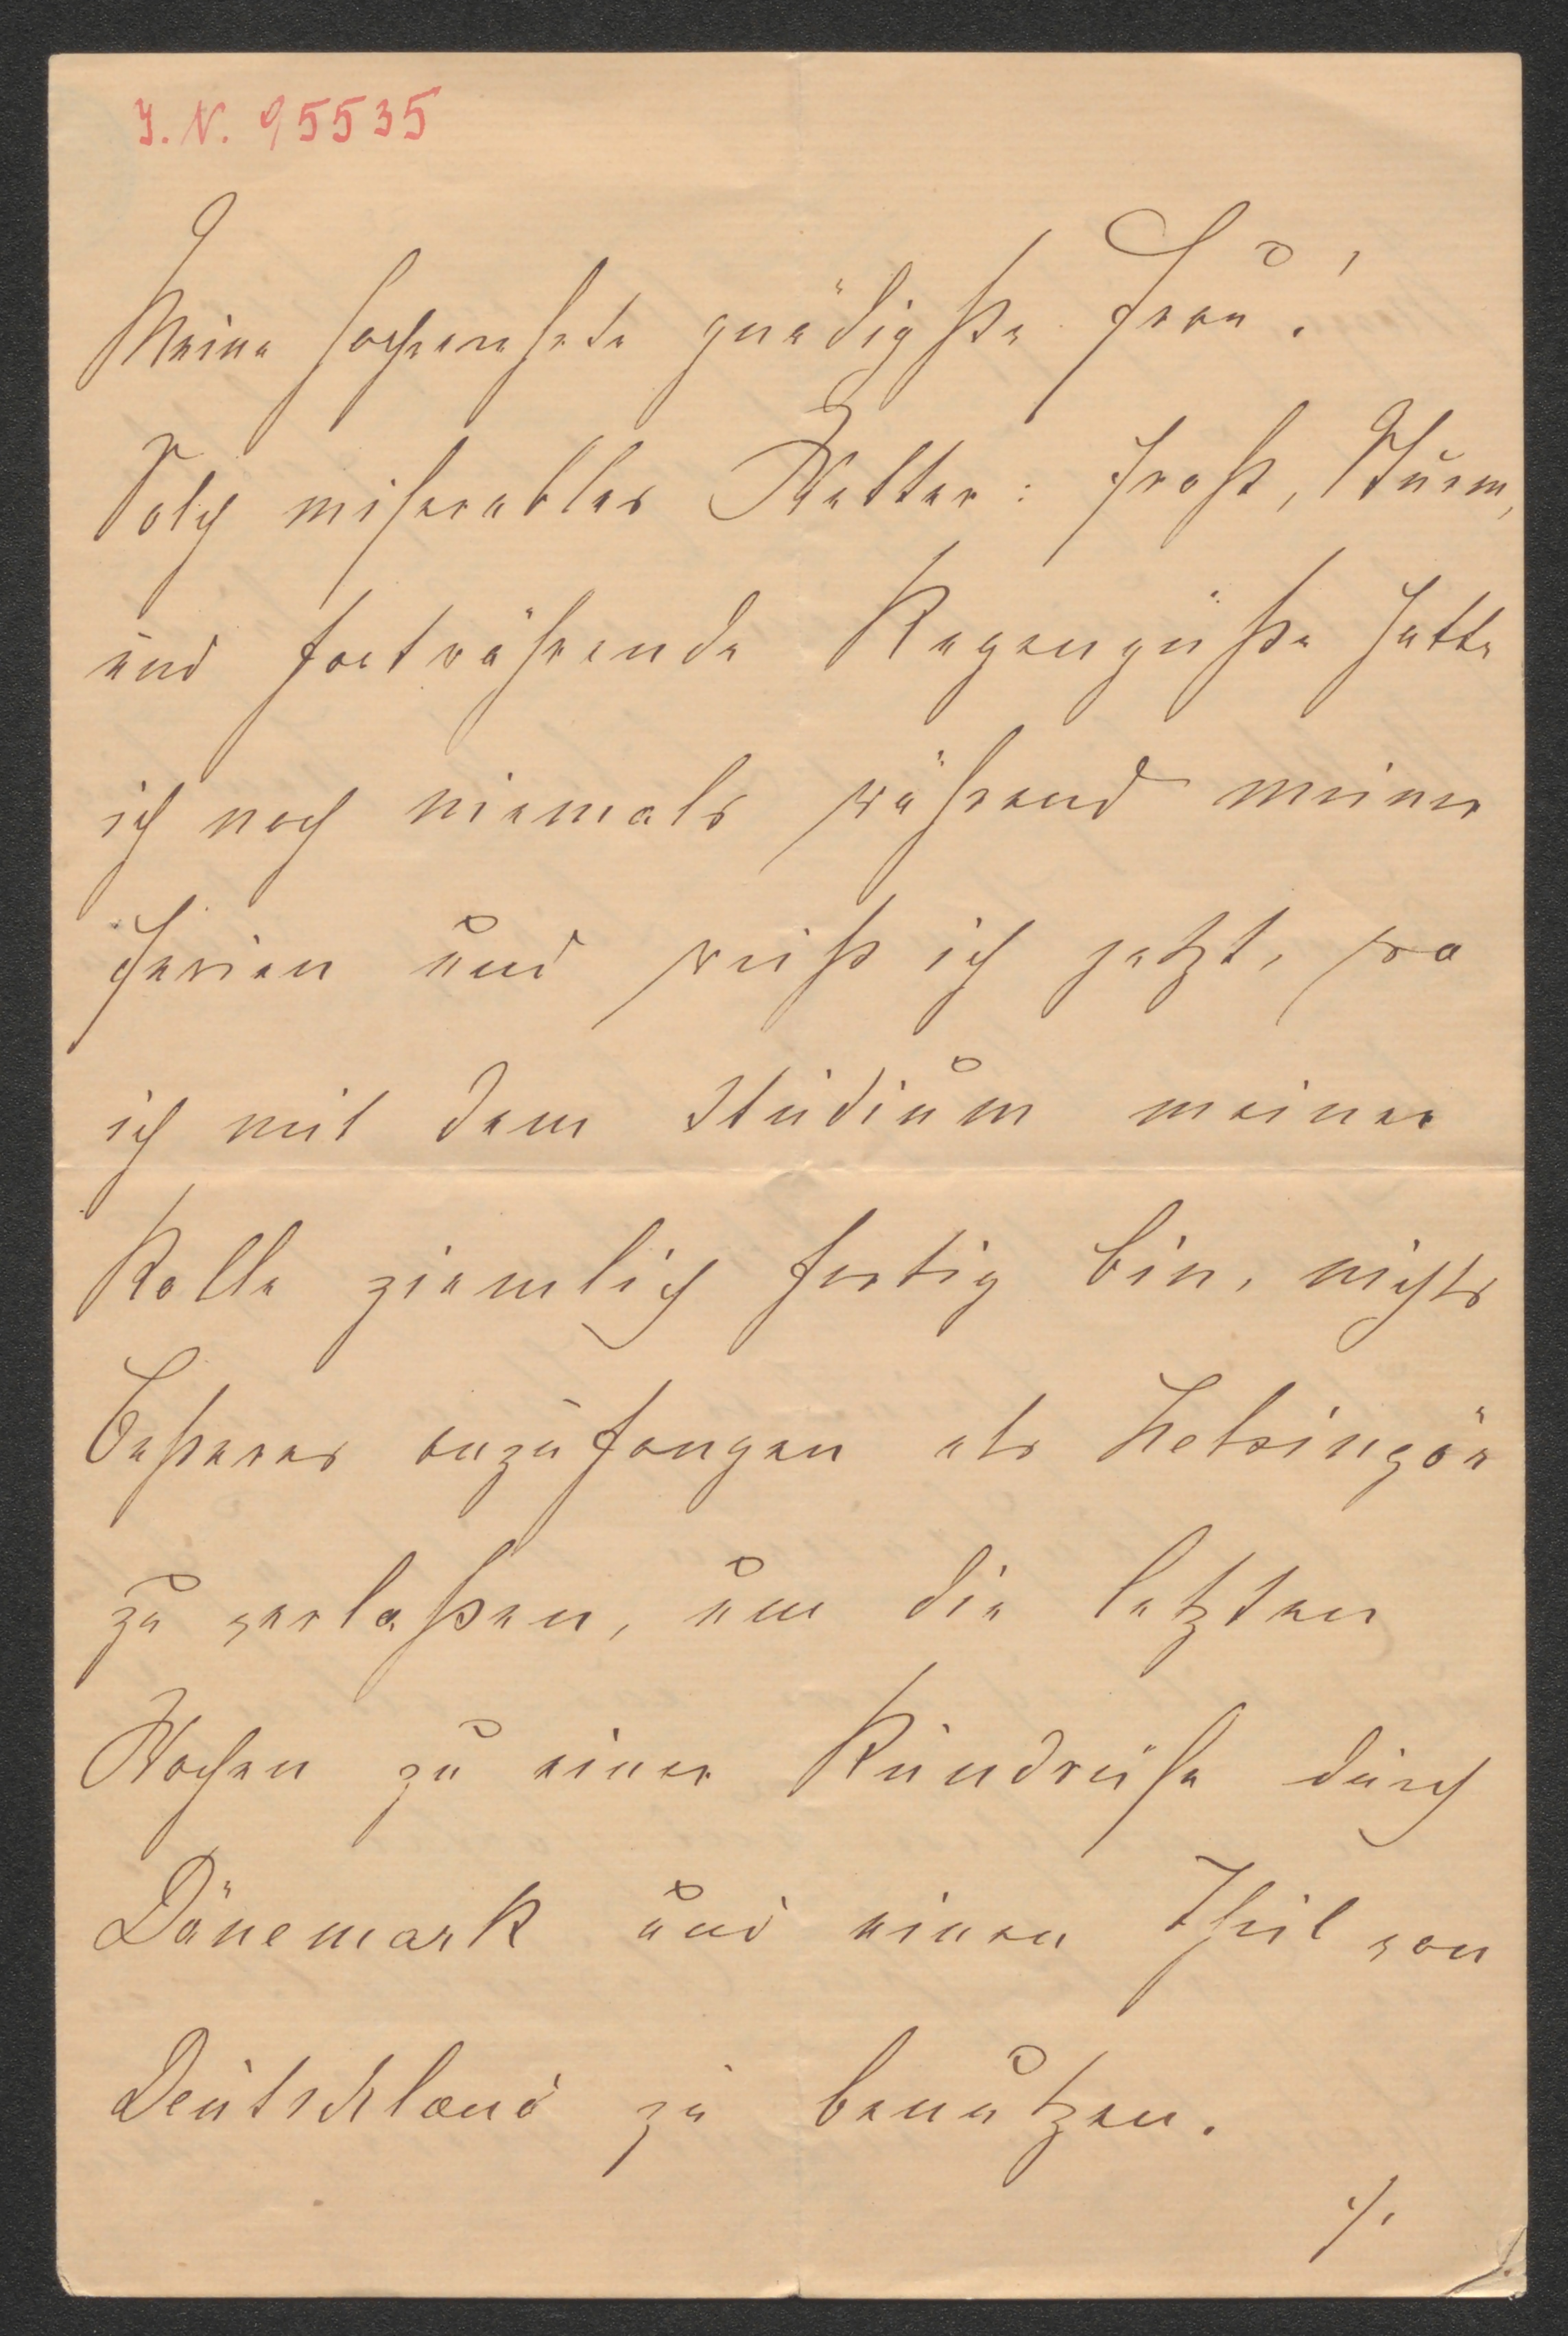 I. N. 95535
Meine hochverehrte gnädigste Frau!
Solch miserables Wetter: Frost, Sturm,
und fortwährende Regengüße hatte
ich noch niemals während meiner
Ferien und weiß ich jetzt, wo
ich mit dem Studium meiner
Rolle ziemlich fertig bin, nichts
Beßeres anzufangen als Helsingör
zu verlaßen, um die letzten
Wochen zu einer Rundreise durch
Dänemark und einen Theil von
Deutschland zu benutzen.
./.